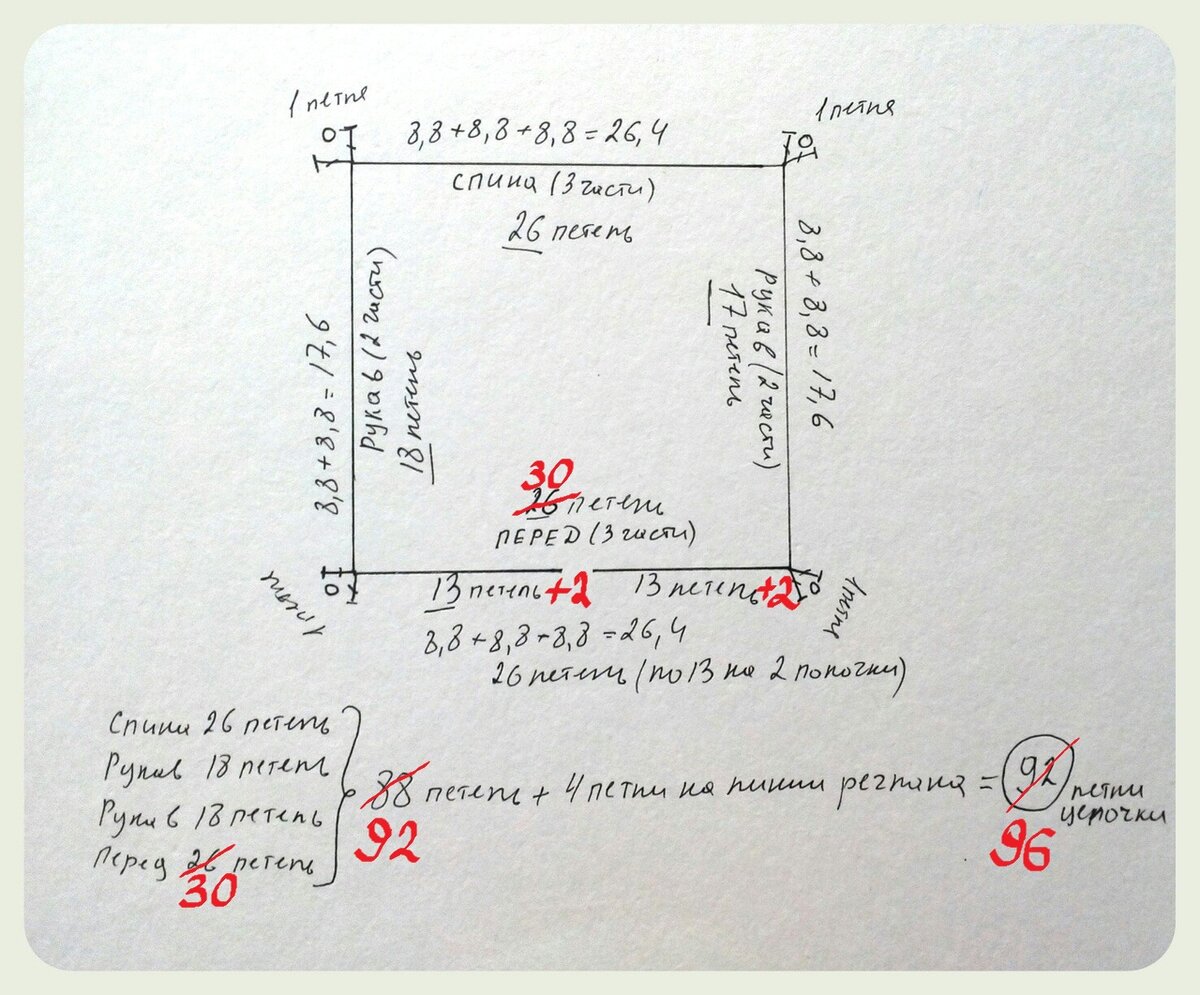 1 петля
1 петля
8,8 + 8,8 + 8,8 = 26,4
СПИНА (3 части)
26 петель
8,8 + 8,8 = 17,6
Рукав (2 части)
18 петель
Рукав (2 части)
17 петель
8,8 + 8,8 = 17,6
30
26 петель
ПЕРЕД (3 части)
1 петля
13 петель +2
13 петель +2
1 петля
8,8 + 8,8 + 8,8 = 26,4
26 петель (по 13 на 2 полочки)
Спина 26 петель
Рукав 18 петель
Рукав 18 петель
Перед 26 петель
30
88 петель + 4 петли на линии реглана = 92 петли
цепочки
92
96